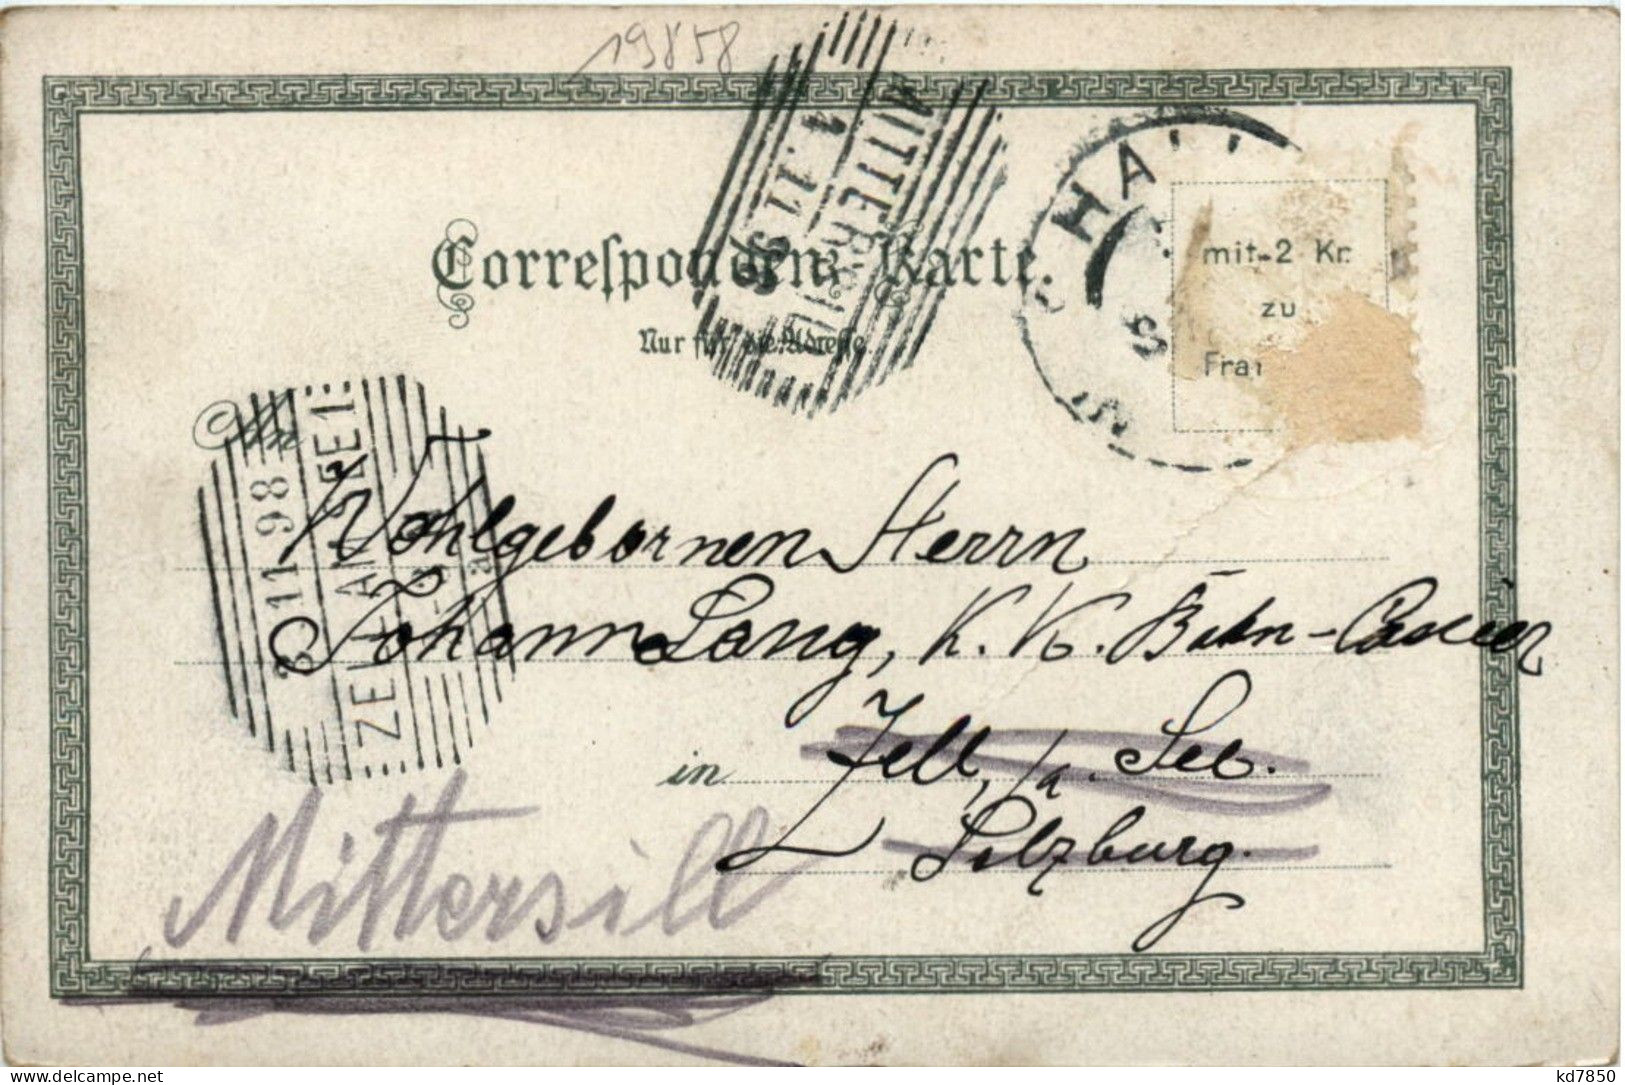 19858
MITTERSILL
4.11.98
HALL
IN
Correspondenz-Karte.
Nur für die Adresse
mit 2 Kr.
zu
Fran
An
3 11 98
ZELL AM SEE 1
Wohlgebornen Herrn
Johann Lang, K. K. Bahn-Cassier
in Zell, a. See.
Salzburg.
Mittersill
www.delcampe.net
kd7850